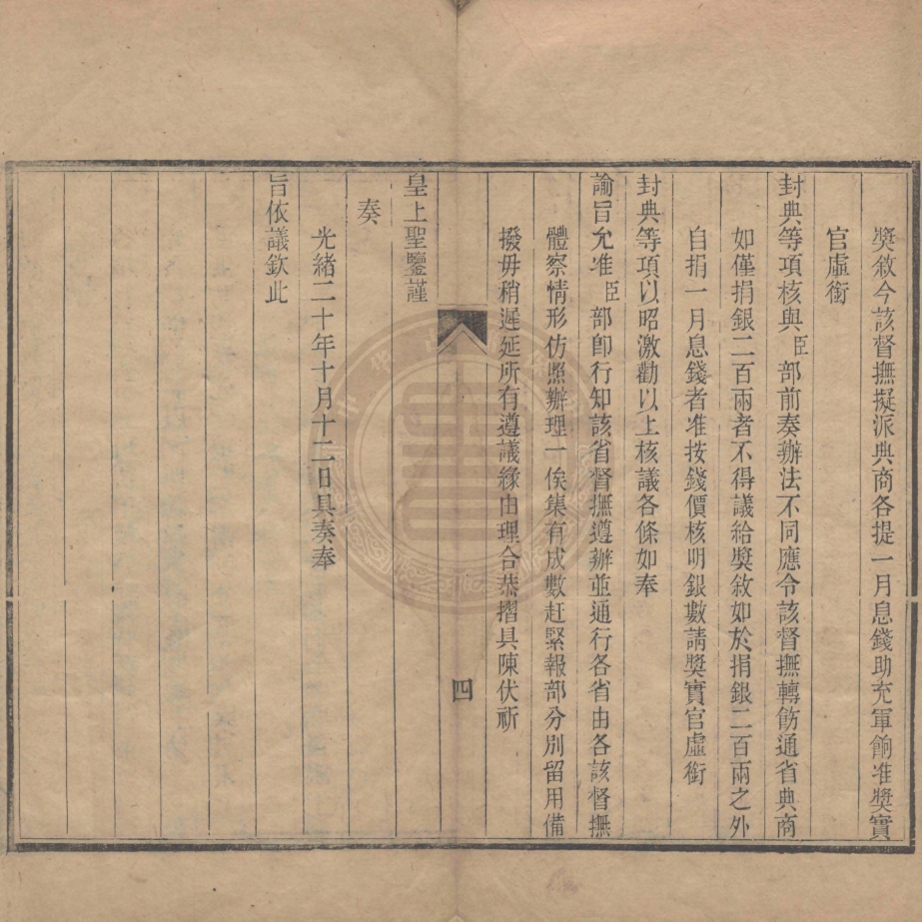 獎敘今該督撫擬派典商各提一月息錢助充軍餉准獎實
官虛銜
封典等項核與臣部前奏辦法不同應令該督撫轉飭通省典商
如僅捐銀二百兩者不得議給獎敘如於捐銀二百兩之外
自捐一月息錢者准按錢價核明銀數請獎實官虛銜
封典等項以昭激勸以上核議各條如奉
諭旨允准臣部卽行知該省督撫遵辦並通行各省由各該督撫
體察情形仿照辦理一俟集有成數赶緊報部分別留用備
撥毋稍遲延所有遵議緣由理合恭摺具陳伏祈
四
皇上聖鑒謹
奏
光緒二十年十月十二日具奏奉
旨依議欽此